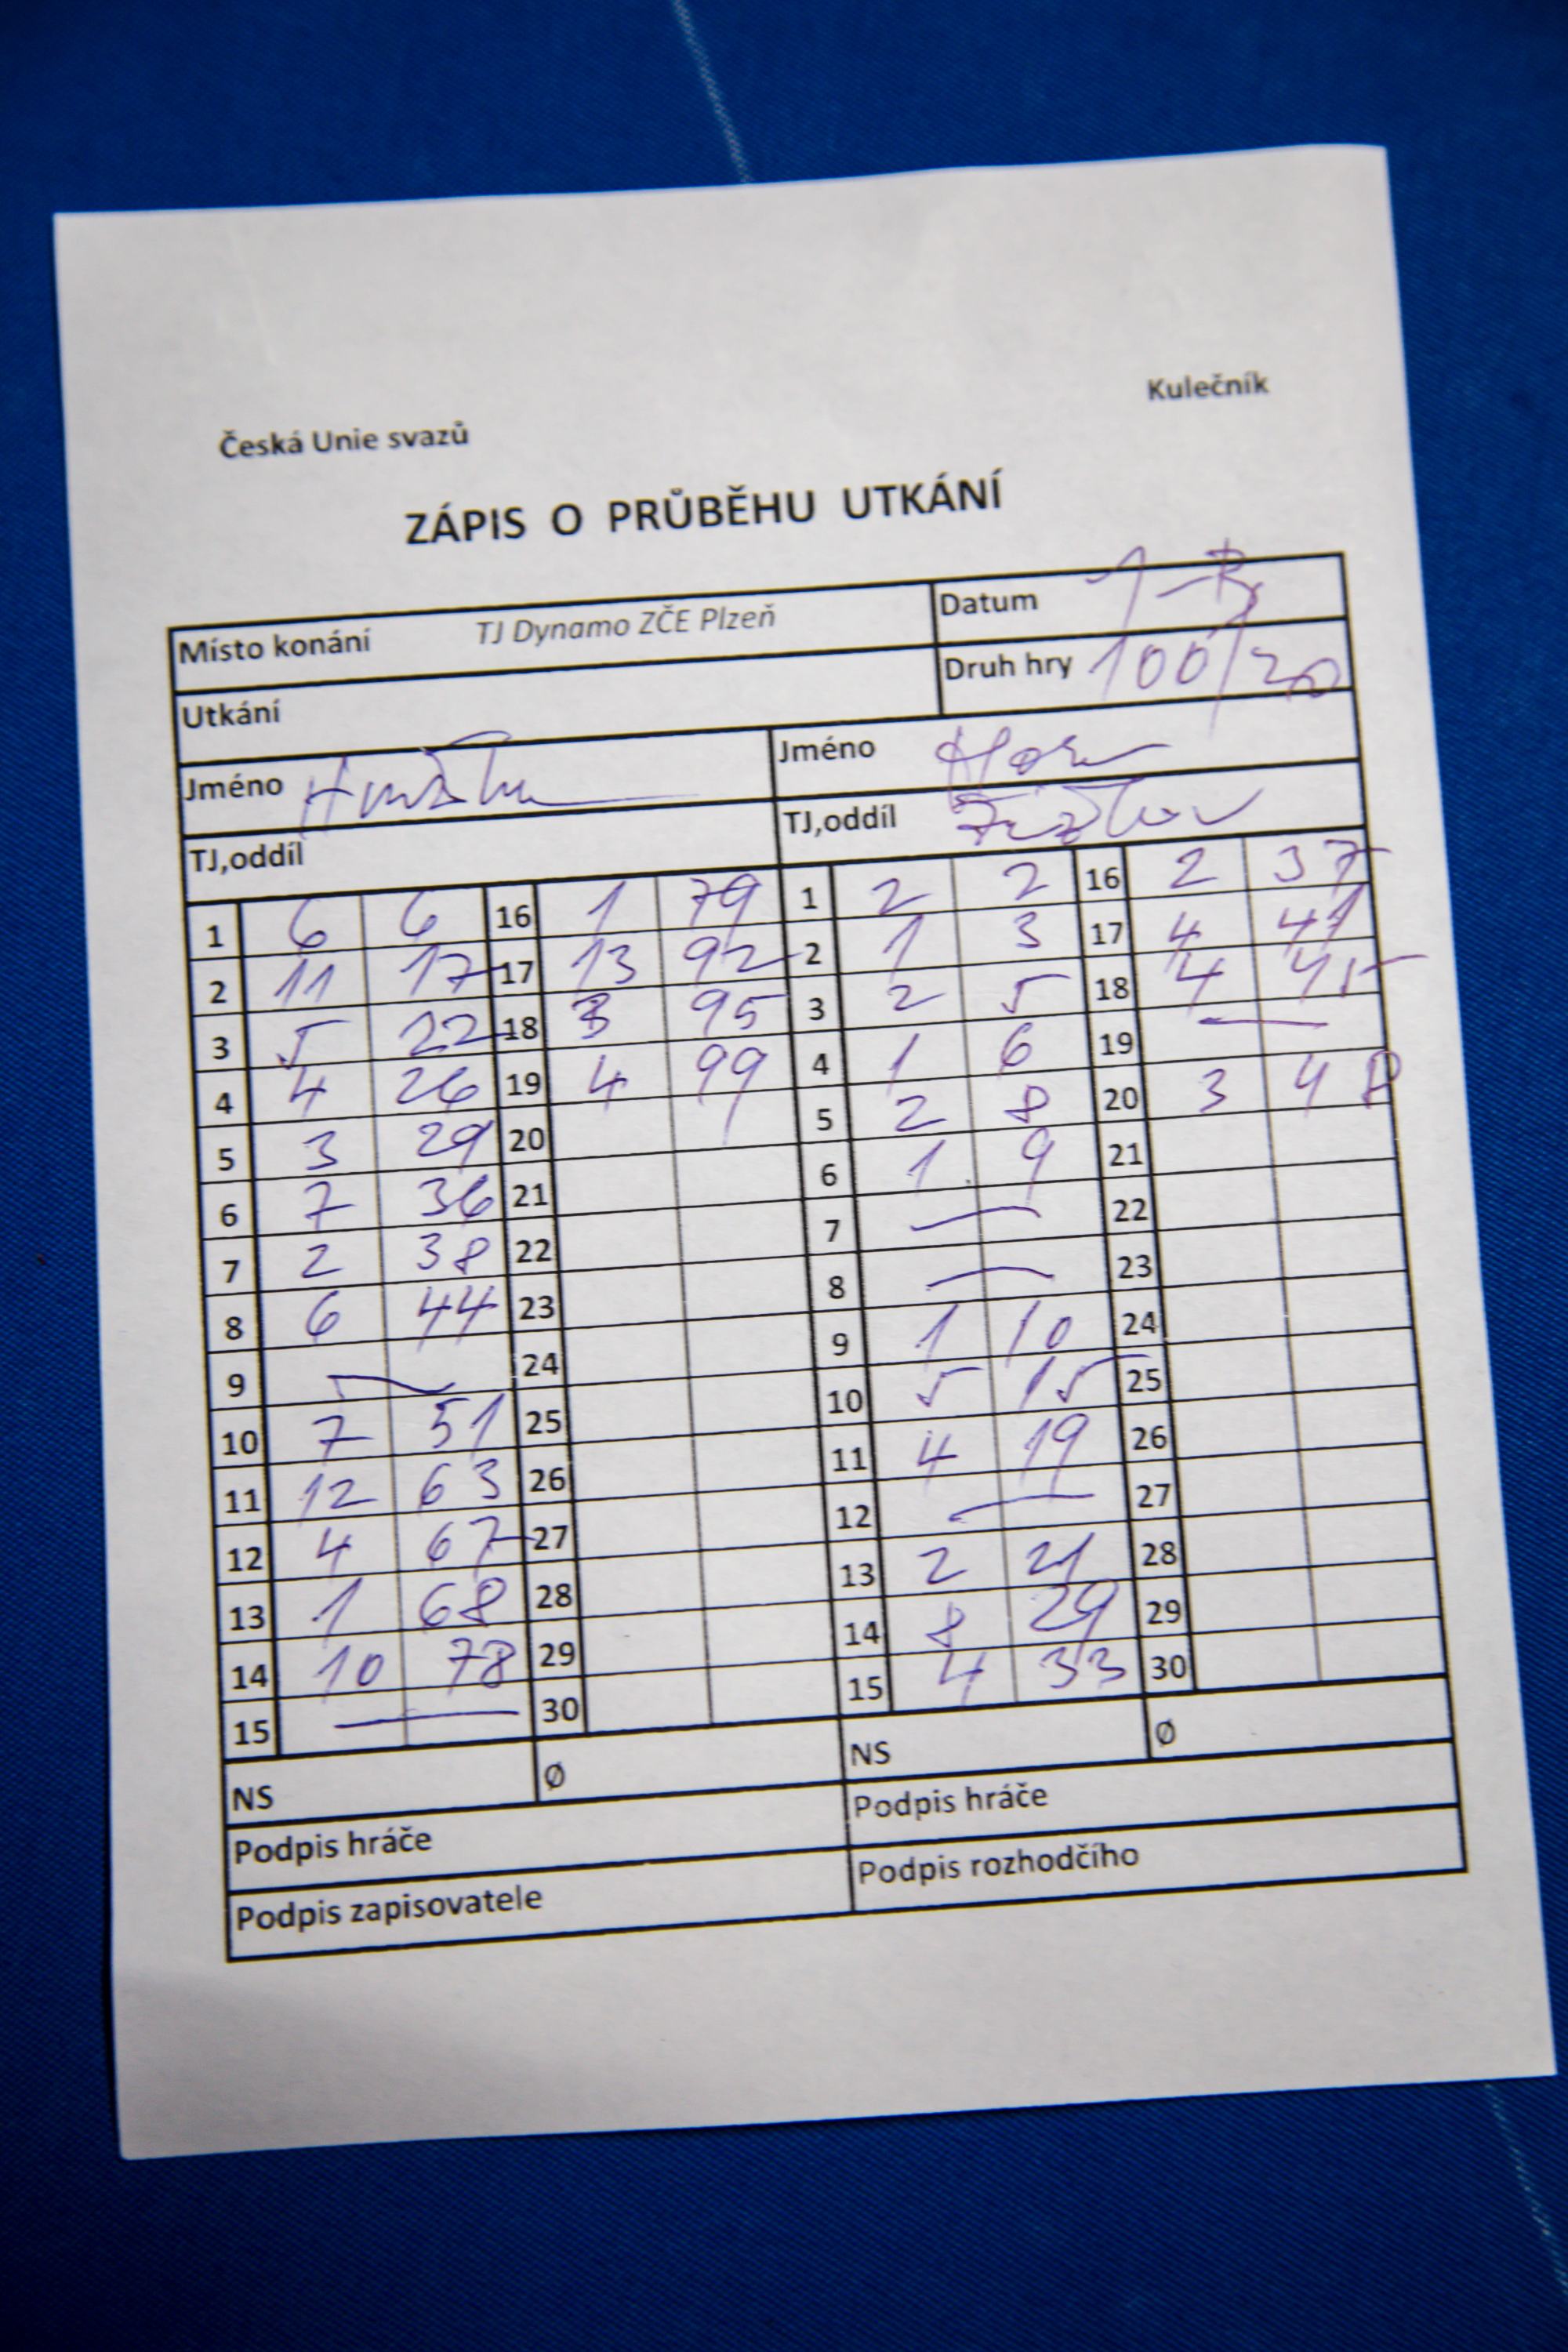 Kulečník
Česká Unie svazů
ZÁPIS O PRŮBĚHU UTKÁNÍ
Místo konání TJ Dynamo ZČE Plzeň Datum
Utkání Druh hry 100/20
Jméno Jméno
TJ,oddíl TJ,oddíl
1 6 6 16 1 79 1 2 2 16 2 37
2 11 17 17 13 92 2 1 3 17 4 41
3 5 22 18 3 95 3 2 5 18 4 45
4 4 26 19 4 99 4 1 6 19 —
5 3 29 20 5 2 8 20 3 48
6 7 36 21 6 1 9 21
7 2 38 22 7 — 22
8 6 44 23 8 — 23
9 — 24 9 1 10 24
10 7 51 25 10 5 15 25
11 12 63 26 11 4 19 26
12 4 67 27 12 — 27
13 1 68 28 13 2 21 28
14 10 78 29 14 8 29 29
15 — 30 15 4 33 30
NS Ø NS Ø
Podpis hráče Podpis hráče
Podpis zapisovatele Podpis rozhodčího